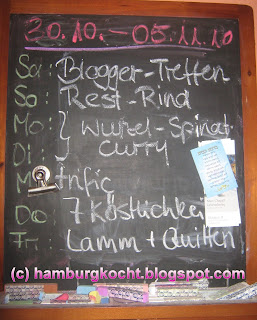 30.10.-05.11.10
Sa: Blogger-Treffen
So: Rest-Rind
Mo: } Wurzel-Spinat-
Di: } Curry
Mi
Do: 7 Köstlichkei
Fr: Lamm + Quitten
(c) hamburgkocht.blogspot.com